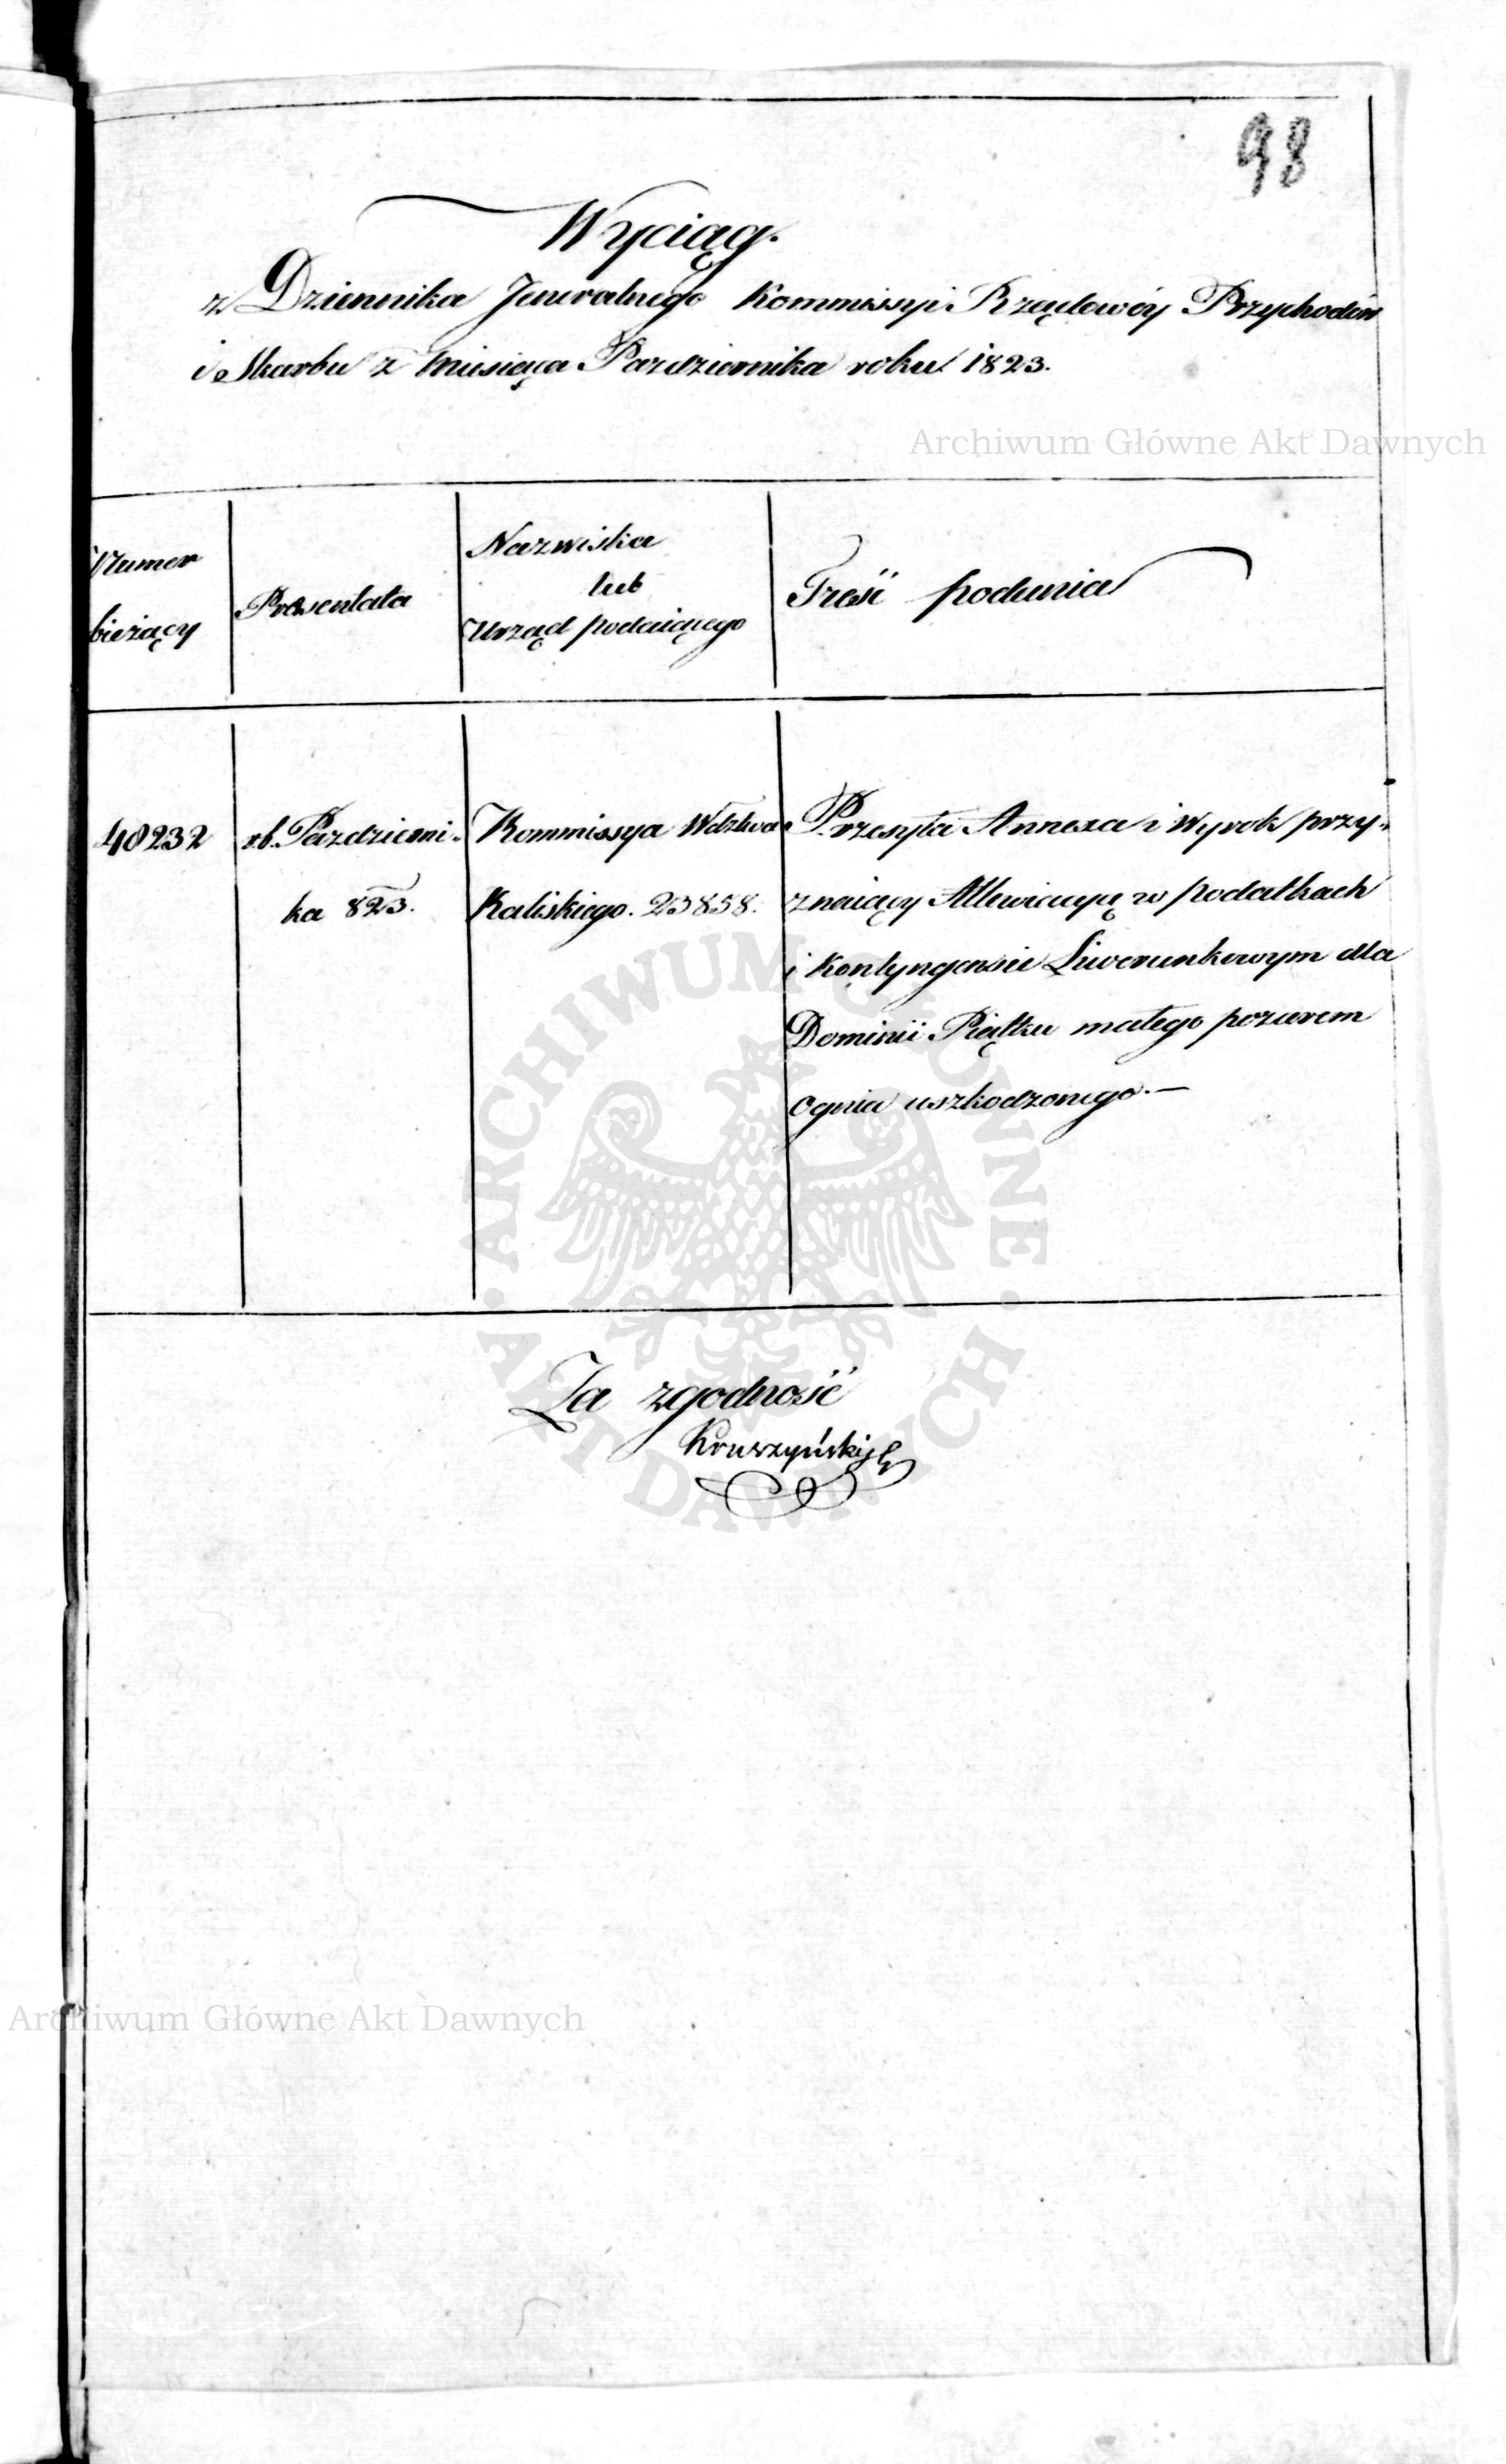 98
Wyciąg.
z Dziennika Jeneralnego Kommissyi Rządowéy Przychodów
i Skarbu z miesiąca Pazdziernika roku 1823.
Archiwum Główne Akt Dawnych
Numer
bieżący
Praesentata
Nazwiska
lub
Urząd podaiącego
Treść podania
40232
Pazdzierni-
ka 823.
Kommissya Wdztwa
Kaliskiego. 23858.
Przesyła Annexa i Wyrok przy-
znaiący Allewiacyą w podatkach
i kontyngensie Liwerunkowym dla
Dominii Piątku małego pozarem
Ognia uszkodzonego.—
ARCHIWUM GŁÓWNE
AKT DAWNYCH
Za zgodność
Kruszyński
Archiwum Główne Akt Dawnych